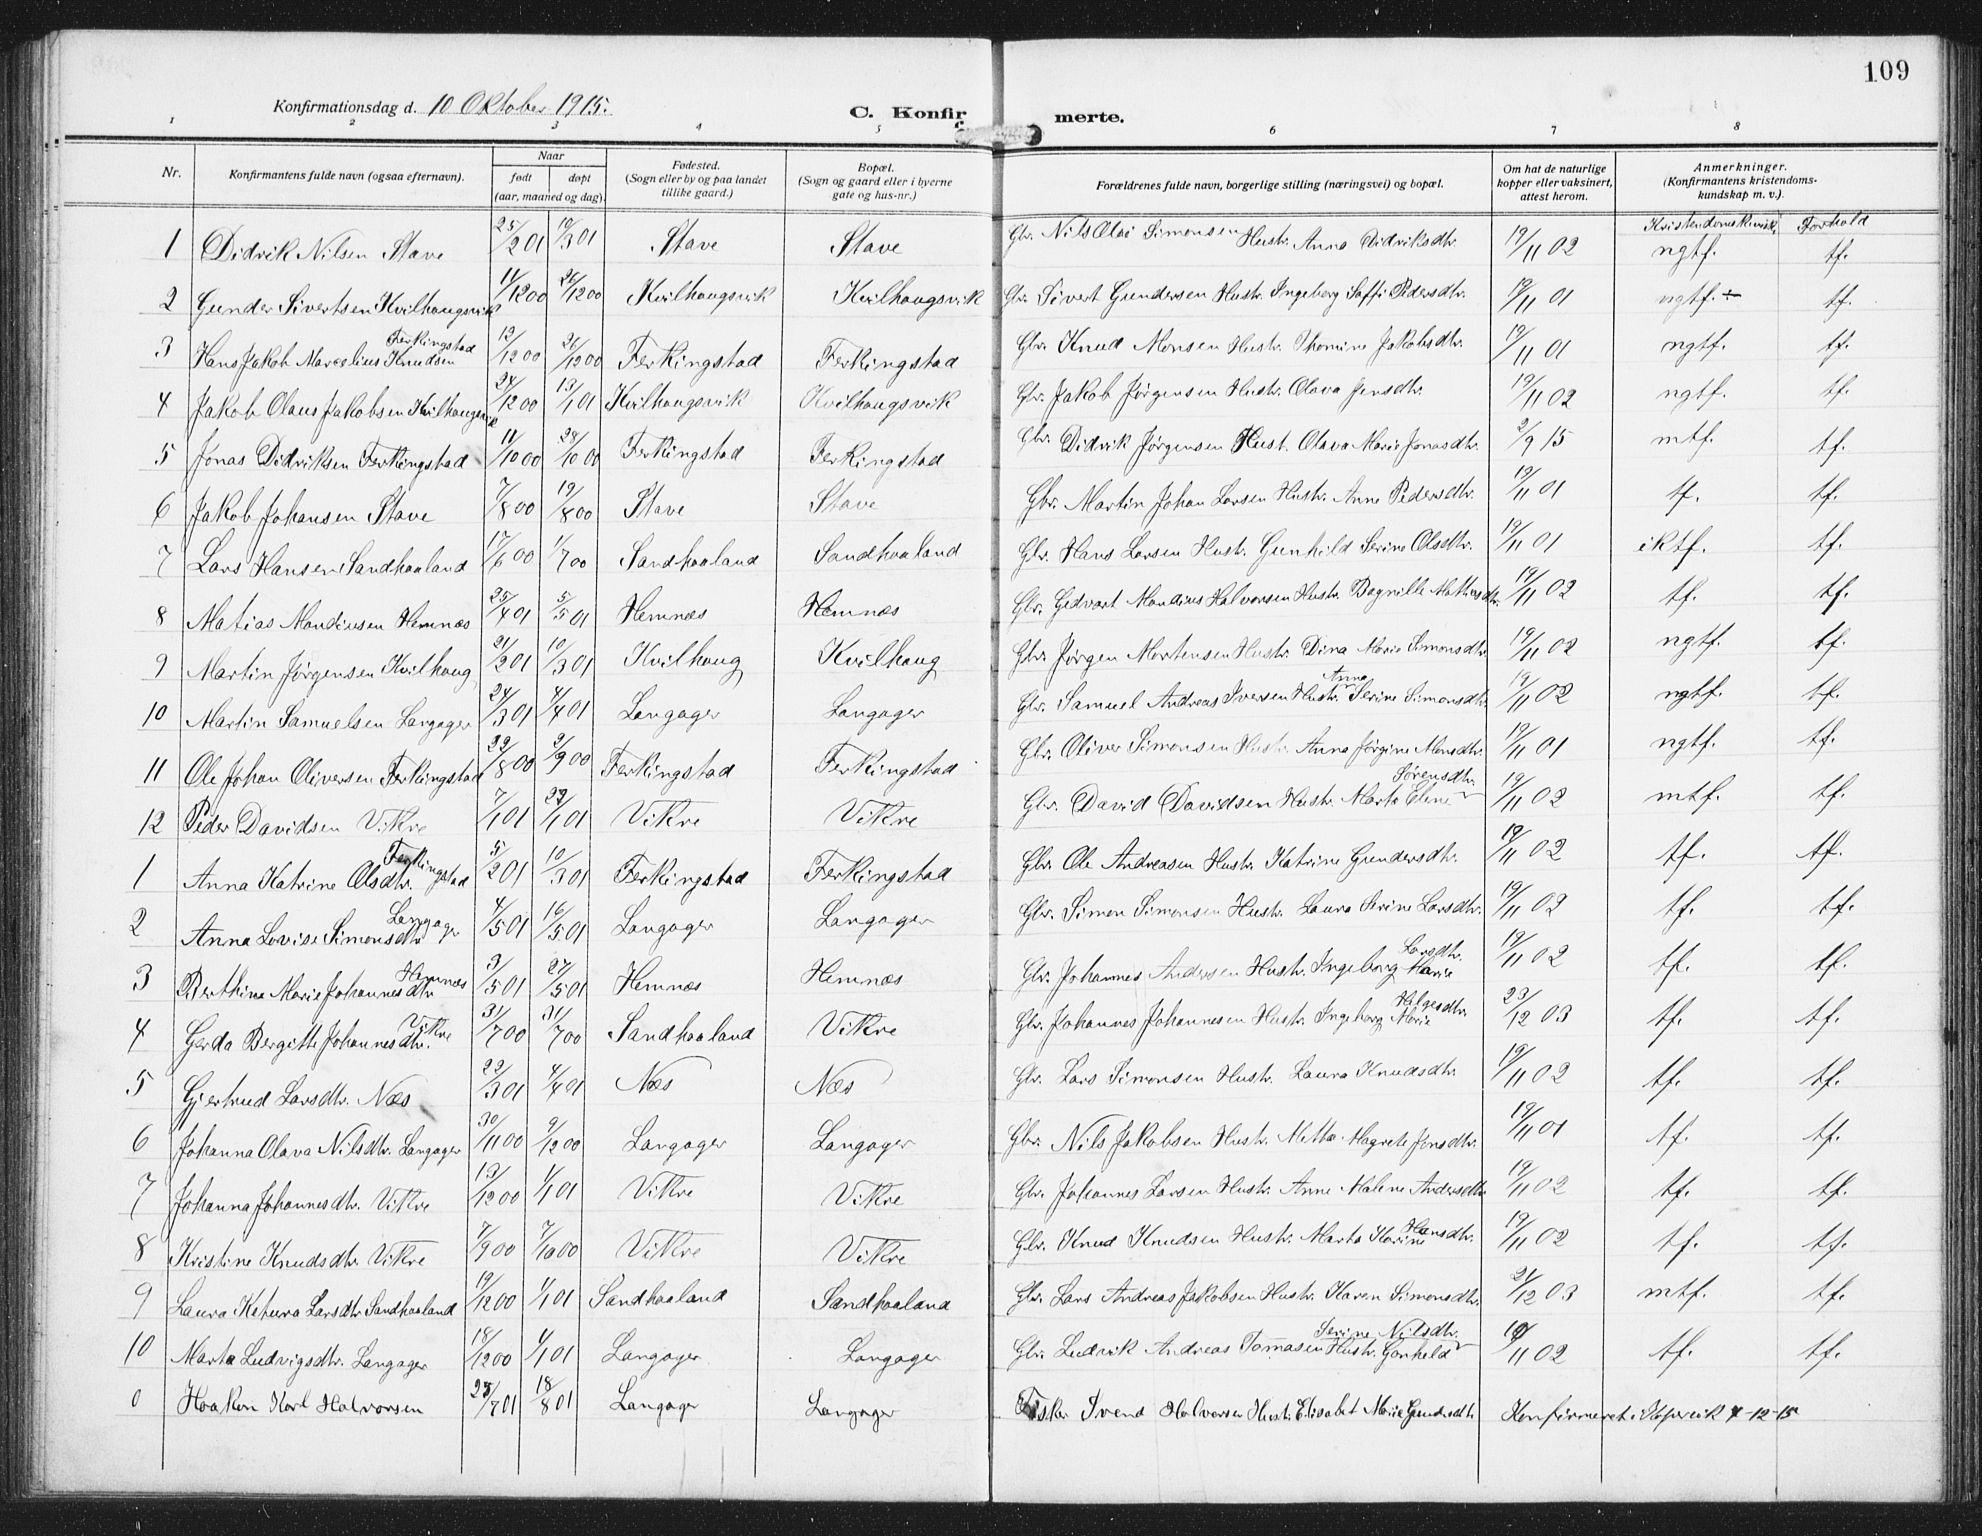 109
Konfirmationsdag d. 10 Oktober 1915. C. Konfirmerte.
1 2 3 4 5 6 7 8
Nr. Konfirmantens fulde navn (ogsaa efternavn). Naar født døpt (aar, maaned og dag). Fødested. (Sogn eller by og paa landet tillike gaard.) Bopæl. (Sogn og gaard eller i byerne gate og hus-nr.) Forældrenes fulde navn, borgerlige stilling (næringsvei) og bopæl. Om hat de naturlige kopper eller vaksinert, attest herom. Anmerkninger. (Konfirmantens kristendoms-kundskap m. v.).
Forhold
1 Didrik Nilsen Stave 25/2 01 10/3 01 Stave Stave Gbr. Nils Olai Simonsen Hustr. Anna Didriksdtr. 19/11 02 ngtf. tf.
2 Gunder Sivertsen Kvilhaugsvik 11/12 00 26/12 00 Kvilhaugsvik Kvilhaugsvik Gbr. Sivert Gundersen Hustr. Ingeborg Soffi Pedersdtr. 19/11 01 ngtf. ÷ tf.
3 Hans Jakob Marselius Knudsen Ferkingstad 12/12 00 26/12 00 Ferkingstad Ferkingstad Gbr. Knud Monsen Hustr. Thomine Jakobsdtr. 19/11 01 ngtf. tf.
4 Jakob Olaus Jakobsen Kvilhaugsvik 24/12 00 13/1 01 Kvilhaugsvik Kvilhaugsvik Gbr. Jakob Jørgensen Hustr. Olava Jensdtr. 19/11 02 ngtf. tf.
5 Jonas Didriksen Ferkingstad 11/10 00 28/10 00 Ferkingstad Ferkingstad Gbr. Didrik Jørgensen Hust. Olava Marie Jonasdtr. 2/9 15 mtf. tf.
6 Jakob Johansen Stave 7/8 00 19/8 00 Stave Stave Gbr. Martin Johan Larsen Hustr. Anne Pedersdtr. 19/11 01 tf. tf.
7 Lars Hansen Sandhaaland 17/6 00 1/7 00 Sandhaaland Sandhaaland Gbr. Hans Larsen Hustr. Gunhild Serine Olsdtr. 19/11 01 iktf. tf.
8 Matias Mandiusen Hemnæs 25/4 01 5/5 01 Hemnæs Hemnæs Gbr. Gedvart Mandius Halvorsen Hustr. 19/11 02 tf. tf.
9 Martin Jørgensen Kvilhaug 21/2 01 10/3 01 Kvilhaug Kvilhaug Gbr. Jørgen Mortensen Hustr. Dina Marie Simonsdtr. 19/11 02 ngtf. tf.
10 Martin Samuelsen Langager 24/3 01 4/4 01 Langager Langager Gbr. Samuel Andreas Iversen Hustr. Anna Serine Simonsdtr. 19/11 02 ngtf. tf.
11 Ole Johan Oliversen Ferkingstad 22/8 00 2/9 00 Ferkingstad Ferkingstad Gbr. Oliver Simonsen Hustr. Anna Jørgine Monsdtr. 19/11 01 ngtf. tf.
12 Peder Davidsen Vikre 7/1 01 27/1 01 Vikre Vikre Gbr. David Davidsen Hustr. Marta Elene Sørensdtr. 19/11 02 mtf. tf.
1 Anna Katrine Olsdtr. Ferkingstad 5/2 01 10/3 01 Ferkingstad Ferkingstad Gbr. Ole Andreasen Hustr. Katrine Gundersdtr. 19/11 02 tf. tf.
2 Anna Lovise Simonsdtr. Langager 4/5 01 16/5 01 Langager Langager Gbr. Simon Simonsen Hustr. Laura Serine Larsdtr. 19/11 02 tf. tf.
3 Berthine Marie Johannesdtr. Hemnæs 3/5 01 27/5 01 Hemnæs Hemnæs Gbr. Johannes Andersen Hustr. Ingeborg Marie Larsdtr. 19/11 02 tf. tf.
4 Gerda Bergitte Johannesdtr. Vikre 31/7 00 31/7 00 Sandhaaland Vikre Gbr. Johannes Johannesen Hustr. Ingeborg Marie Helgesdtr. 23/12 03 tf. tf.
5 Gjertrud Larsdtr. Næs 22/3 01 4/4 01 Næs Næs Gbr. Lars Simonsen Hustr. Laura Knudsdtr. 19/11 02 tf. tf.
6 Johanna Olava Nilsdtr. Langager 30/11 00 9/12 00 Langager Langager Gbr. Nils Jakobsen Hustr. Mette Magrete Jonsdtr. 19/11 01 tf. tf.
7 Johanna Johannesdtr. Vikre 13/12 00 1/1 01 Vikre Vikre Gbr. Johannes Larsen Hustr. Anne Malene Andersdtr. 19/11 02 tf. tf.
8 Kristine Knudsdtr. Vikre 7/9 00 7/10 00 Vikre Vikre Gbr. Knud Knudsen Hustr. Marta Karine Hansdtr. 19/11 02 tf. tf.
9 Laura Katura Larsdtr. Sandhaaland 19/12 00 1/1 01 Sandhaaland Sandhaaland Gbr. Lars Andreas Jakobsen Hustr. Karen Simonsdtr. 21/12 03 mtf. tf.
10 Marta Ludvigsdtr. Langager 18/12 00 1/1 01 Langager Langager Gbr. Ludvik Andreas Tomasen Hustr. Gonheld Serine Nilsdtr. 19/11 02 tf. tf.
0 Haakon Karl Halvorsen 25/7 01 18/8 01 Langager Langager Fisker Svend Halvorsen Hustr. Elisabet Marie Gundersdtr. Konfirmeret i Kopervik 4-12-15